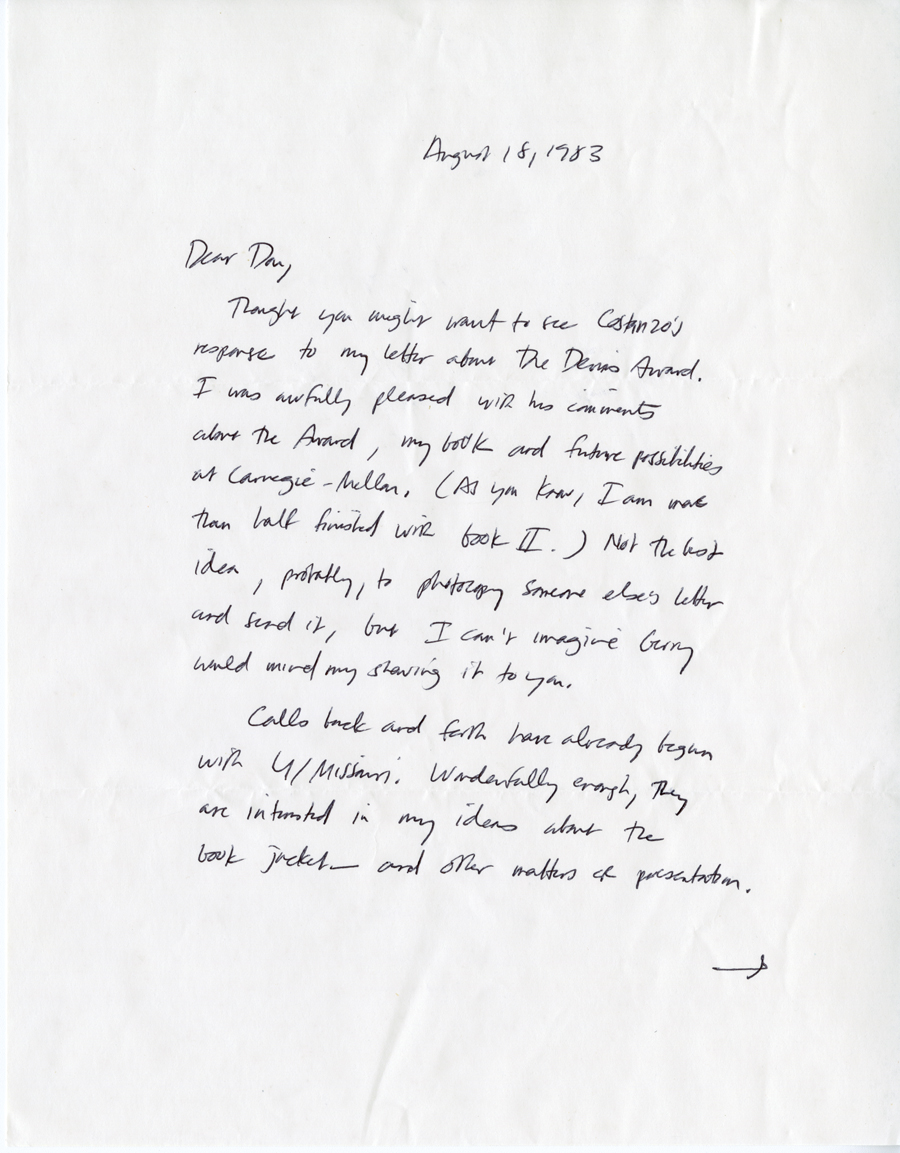 August 18, 1983
Dear Don,
Thought you might want to see Costanzo's
response to my letter about the Devins Award.
I was awfully pleased with his comments
about the Award, my book and future possibilities
at Carnegie-Mellon. (As you know, I am more
than half finished with book II.) Not the best
idea, probably, to photocopy someone else's letter
and send it, but I can't imagine Gerry
would mind my showing it to you.
Calls back and forth have already begun
with U/Missouri. Wonderfully enough, they
are interested in my ideas about the
book jacket — and other matters of presentation.
→